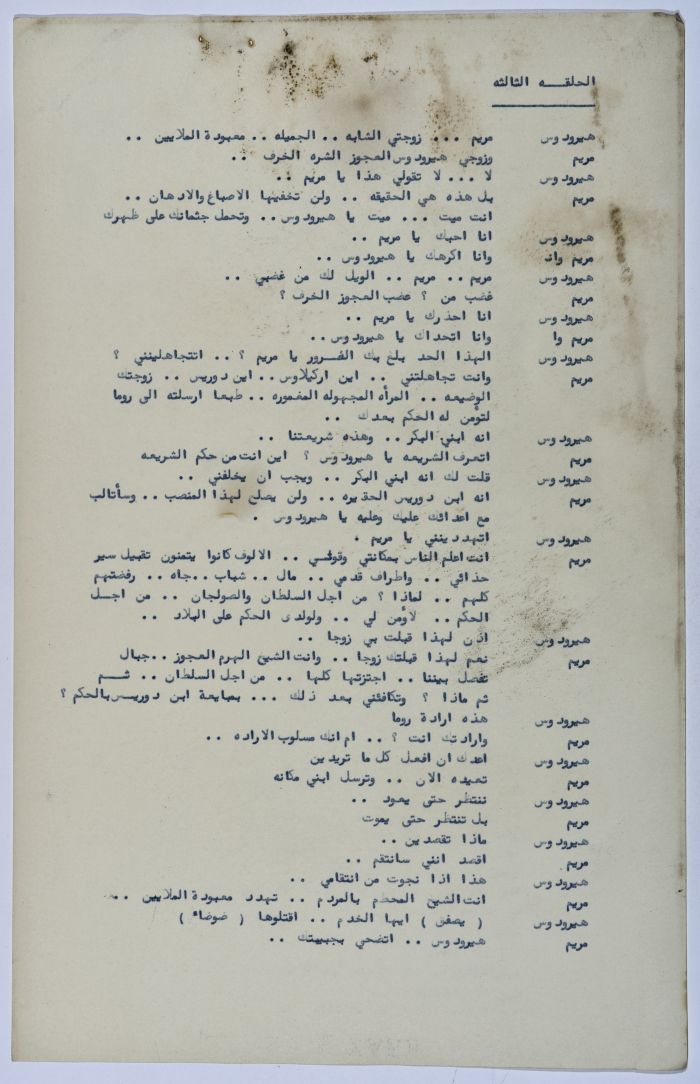 الحلقــه الثالثه
هيرودوس مريم ... زوجتي الشابه .. الجميله .. معبودة الملايين ..
مريم وزوجي هيرودوس العجوز الشره الخرف ..
هيرودوس لا ... لا تقولي هذا يا مريم ..
مريم بل هذه هي الحقيقه .. ولن تخفيها الاصباغ والادهان ..
انت ميت ... ميت يا هيرودوس .. وتحمل جثمانك على ظهرك
هيرودوس انا احبك يا مريم ..
مريم وانا اكرهك يا هيرودوس ..
هيرودوس مريم .. مريم .. الويل لك من غضبي ..
مريم غضب من ؟ غضب العجوز الخرف ؟
هيرودوس انا احذرك يا مريم ..
مريم وانا اتحداك يا هيرودوس ..
هيرودوس الهذا الحد بلغ بك الغـرور يا مريم ؟ .. اتتجاهلينني ؟
مريم وانت تجاهلتني .. اين اركيلاوس .. ابن دوريس .. زوجتك
الوضيعه .. المرأه المجهوله المغموره .. طبعا ارسلته الى روما
لتؤمن له الحكم بعدك ..
هيرودوس انه ابني البكر .. وهذه شريعتنا ..
مريم اتعرف الشريعه يا هيرودوس ؟ اين انت من حكم الشريعه
هيرودوس قلت لك انه ابني البكر .. ويجب ان يخلفني ..
مريم انه ابن دوريس الحقيره .. ولن يصلح لهذا المنصب .. وسأتالب
مع اعدائك عليك وعليه يا هيرودوس .
هيرودوس اتهددينني يا مريم .
مريم انت اعلم الناس بمكانتي وقوتــي .. الالوف كانوا يتمنون تقبيل سير
حذائي .. واطراف قدمي .. مال .. شباب .. جاه .. رفضتهم
كلهم .. لماذا ؟ من اجل السلطان والصولجان .. من اجــل
الحكم .. لاؤمن لي .. ولولدى الحكم على البلاد ..
هيرودوس اذن لهذا قبلت بي زوجا ..
مريم نعم لهذا قبلتك زوجا .. وانت الشيخ الهرم العجوز .. جبال
تفصل بيننا .. اجتزتها كلها .. من اجل السلطان .. ثــم
ثم ماذا ؟ وتكافئني بعد ذلك ... بمبايعة ابن دوريس بالحكم ؟
هيرودوس هذه ارادة روما
مريم وارادتك انت ؟ .. ام انك مسلوب الاراده ..
هيرودوس اعدك ان افعل كل ما تريدين
مريم تعيده الان .. وترسل ابني مكانه
هيرودوس ننتظر حتى يعود ..
مريم بل تنتظر حتى يموت
هيرودوس ماذا تقصدين ..
مريم اقصد انني سانتقم ..
هيرودوس هذا اذا نجوت من انتقامي ..
مريم انت الشيخ المحطم بالمردم .. تهدد معبودة الملايين ..
هيرودوس ( يصفق ) ايها الخدم .. اقتلوها ( ضوضاء )
مريم هيرودوس .. اتضحي بحبيبتك ..